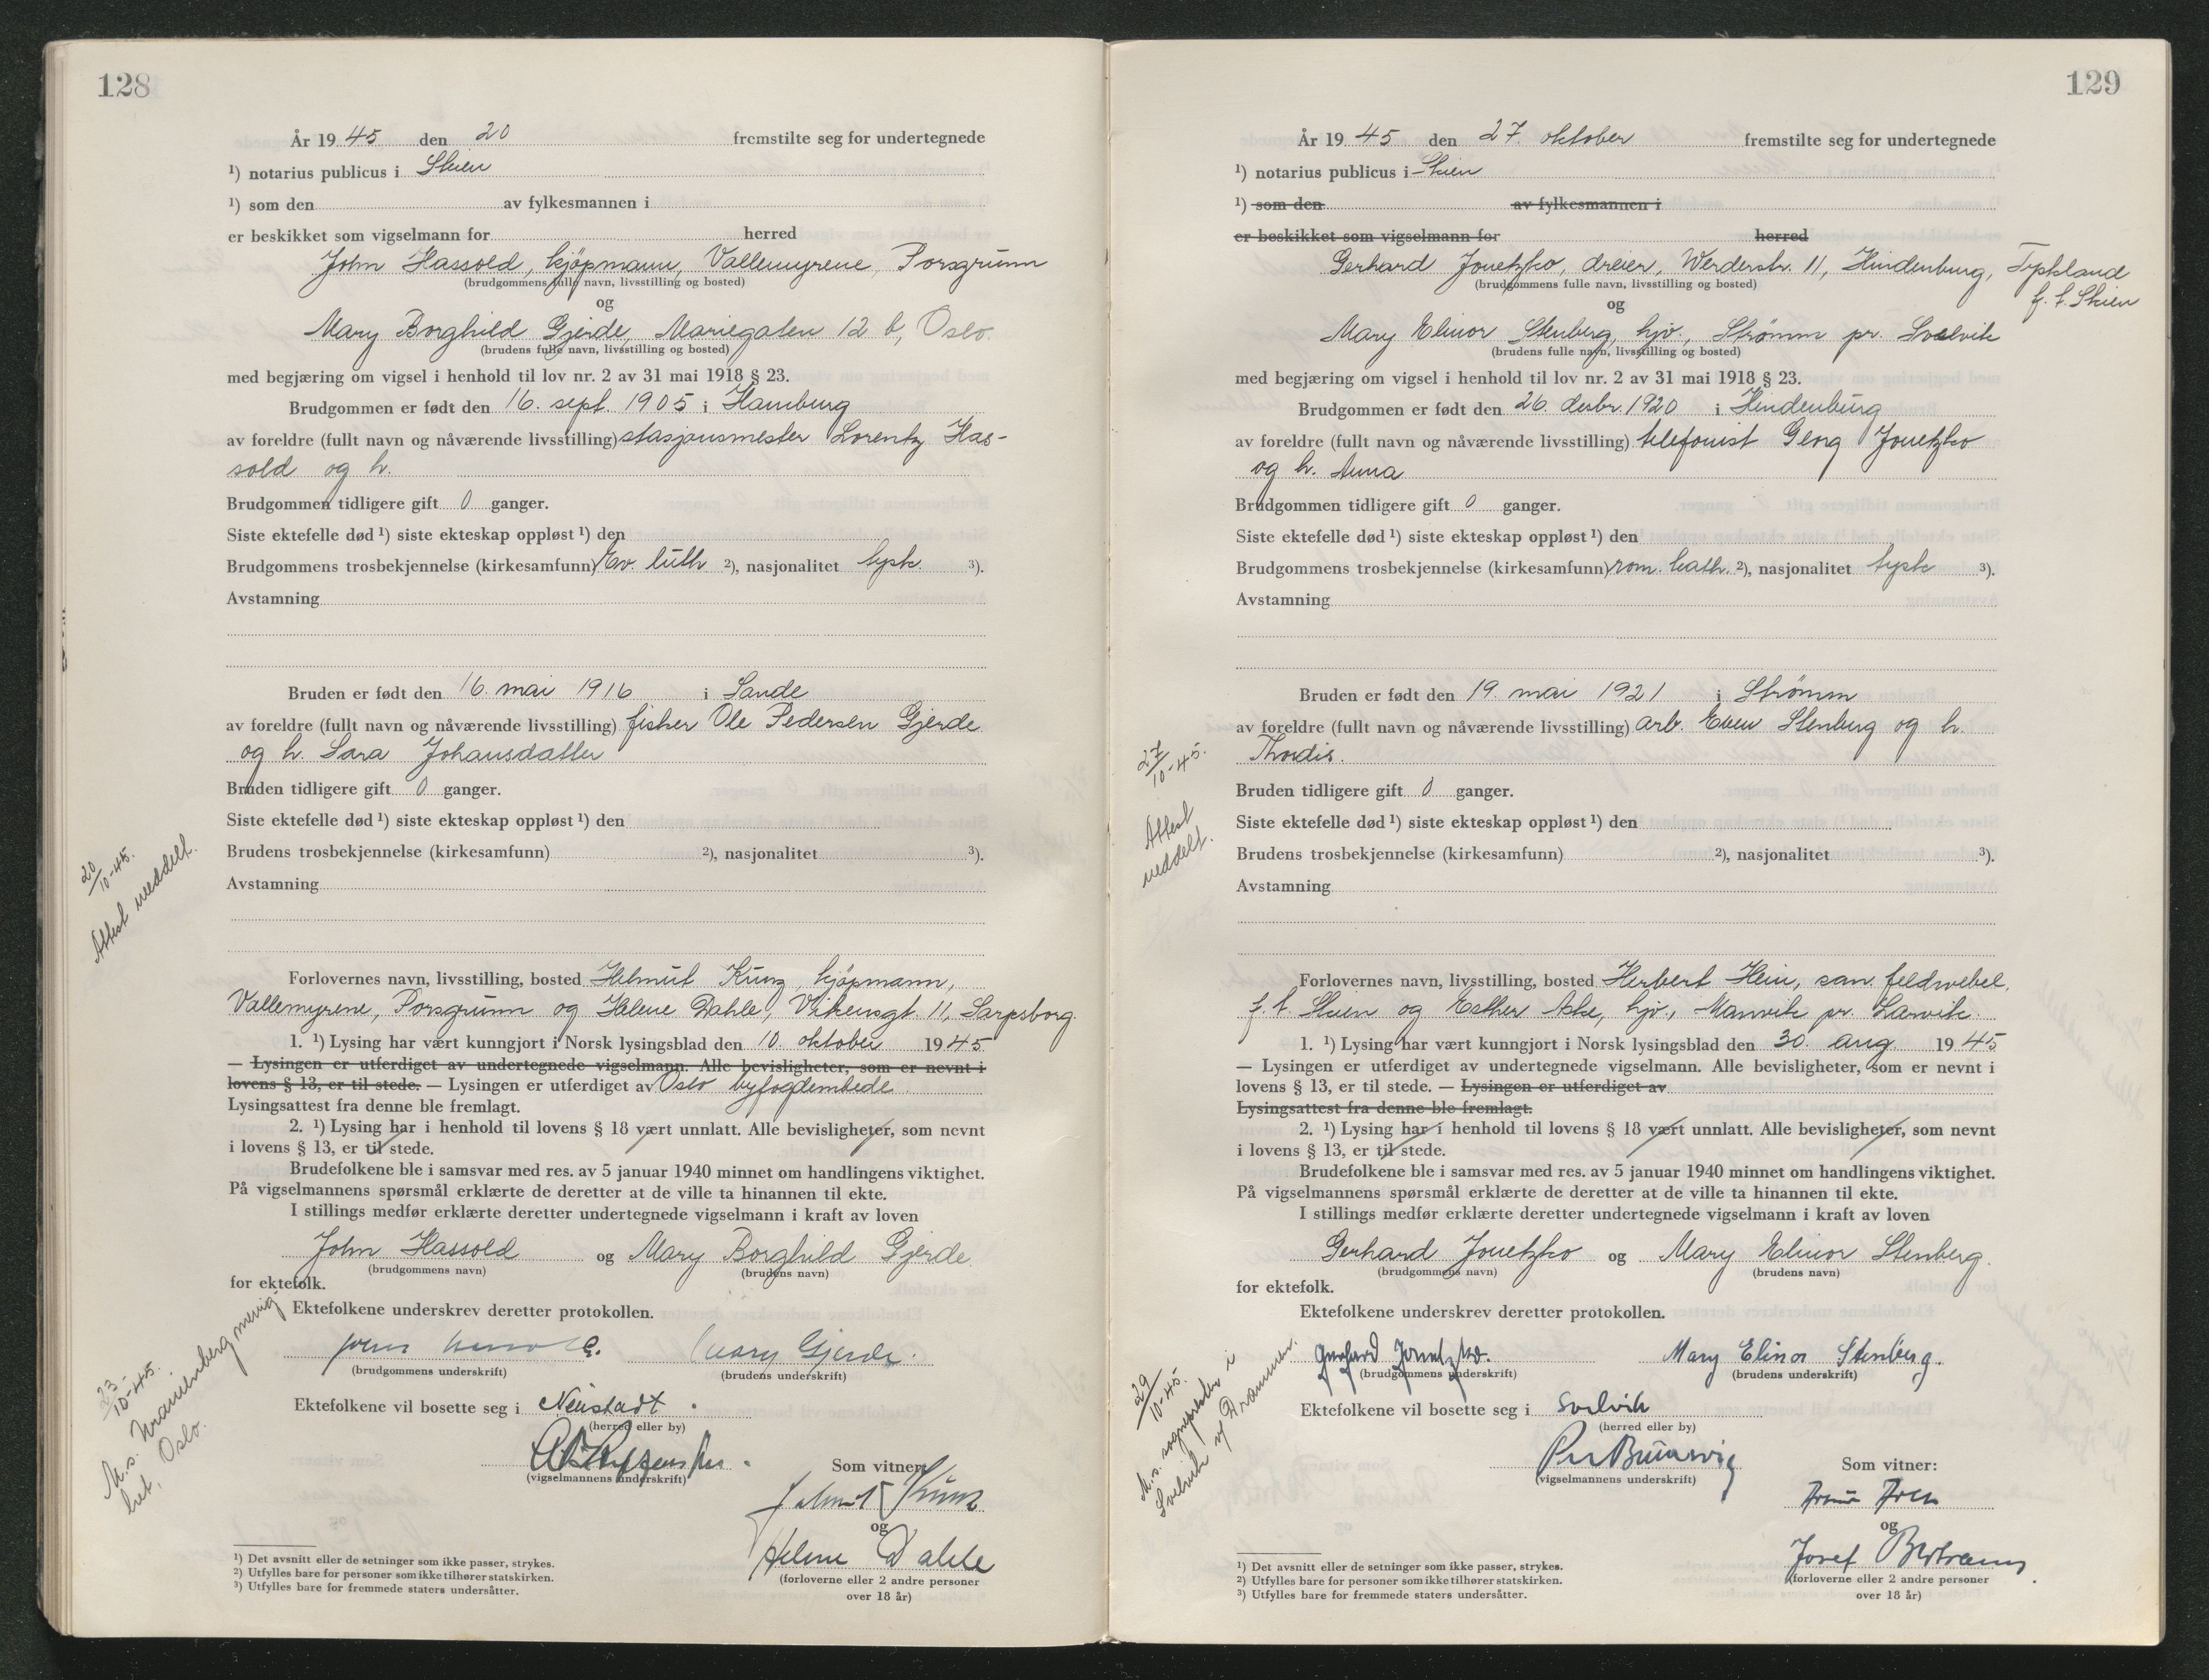 128
År 1945 den 20 fremstilte seg for undertegnede
¹) notarius publicus i Skien
¹) som den av fylkesmannen i
er beskikket som vigselmann for herred
John Hassold, kjøpmann, Vallemyrene, Porsgrunn
(brudgommens fulle navn, livsstilling og bosted)
og
Mary Borghild Gjerde, Mariegaten 12 b, Oslo.
(brudens fulle navn, livsstilling og bosted)
med begjæring om vigsel i henhold til lov nr. 2 av 31 mai 1918 § 23.
Brudgommen er født den 16. sept. 1905 i Hamburg
av foreldre (fullt navn og nåværende livsstilling) stasjonsmester Lorentz Has-
sold og h.
Brudgommen tidligere gift 0 ganger.
Siste ektefelle død ¹) siste ekteskap oppløst ¹) den
Brudgommens trosbekjennelse (kirkesamfunn) Ev. luth ²), nasjonalitet tysk ³).
Avstamning
Bruden er født den 16. mai 1916 i Sande
av foreldre (fullt navn og nåværende livsstilling) fisker Ole Pedersen Gjerde
og h. Sara Johansdatter
Bruden tidligere gift 0 ganger.
Siste ektefelle død ¹) siste ekteskap oppløst ¹) den
Brudens trosbekjennelse (kirkesamfunn) ²), nasjonalitet ³).
Avstamning
20/10-45.
Attest meddelt.
Forlovernes navn, livsstilling, bosted Helmut Kunz, kjøpmann,
Vallemyrene, Porsgrunn og Helene Dahle, Vikensgt. 11, Sarpsborg.
1. ¹) Lysing har vært kunngjort i Norsk lysingsblad den 10. oktober 1945
— Lysingen er utferdiget av undertegnede vigselmann. Alle bevisligheter, som er nevnt i
lovens § 13, er til stede. — Lysingen er utferdiget av Oslo byfogdembede
Lysingsattest fra denne ble fremlagt.
2. ¹) Lysing har i henhold til lovens § 18 vært unnlatt. Alle bevisligheter, som nevnt
i lovens § 13, er til stede.
Brudefolkene ble i samsvar med res. av 5 januar 1940 minnet om handlingens viktighet.
På vigselmannens spørsmål erklærte de deretter at de ville ta hinannen til ekte.
I stillings medfør erklærte deretter undertegnede vigselmann i kraft av loven
John Hassold og Mary Borghild Gjerde
(brudgommens navn) (brudens navn)
for ektefolk.
Ektefolkene underskrev deretter protokollen.
Mary Gjerde.
(brudgommens underskrift) (brudens underskrift)
Ektefolkene vil bosette seg i Neustadt.
(herred eller by)
(vigselmannens underskrift)
23-10-45.
M.s. menig
het, Oslo.
Som vitner:
Helmut Kunz
og
Helene Dahle
(forloverne eller 2 andre personer
over 18 år)
¹) Det avsnitt eller de setninger som ikke passer, strykes.
²) Utfylles bare for personer som ikke tilhører statskirken.
³) Utfylles bare for fremmede staters undersåtter.
129
År 1945 den 27. oktober fremstilte seg for undertegnede
¹) notarius publicus i Skien
¹) som den av fylkesmannen i
er beskikket som vigselmann for herred
Gerhard Jonetzko, dreier, Werderstr. 11, Hindenburg, Tyskland
f. t. Skien
(brudgommens fulle navn, livsstilling og bosted)
og
Mary Elinor Stenberg, hjv., Strømm pr. Svelvik
(brudens fulle navn, livsstilling og bosted)
med begjæring om vigsel i henhold til lov nr. 2 av 31 mai 1918 § 23.
Brudgommen er født den 26. desbr. 1920 i Hindenburg
av foreldre (fullt navn og nåværende livsstilling) telefonist Georg Jonetzko
og h. Anna
Brudgommen tidligere gift 0 ganger.
Siste ektefelle død ¹) siste ekteskap oppløst ¹) den
Brudgommens trosbekjennelse (kirkesamfunn) rom. kath. ²), nasjonalitet tysk ³).
Avstamning
Bruden er født den 19. mai 1921 i Strømm
av foreldre (fullt navn og nåværende livsstilling) arb. Even Stenberg og h.
Thordis.
Bruden tidligere gift 0 ganger.
Siste ektefelle død ¹) siste ekteskap oppløst ¹) den
Brudens trosbekjennelse (kirkesamfunn) ²), nasjonalitet ³).
Avstamning
27/10-45.
Attest
meddelt.
Forlovernes navn, livsstilling, bosted Herbert Hein, san. feldwebel,
f. t. Skien og Esther Aske, hjv., Manvik pr. Larvik.
1. ¹) Lysing har vært kunngjort i Norsk lysingsblad den 30. aug. 1945
— Lysingen er utferdiget av undertegnede vigselmann. Alle bevisligheter, som er nevnt i
lovens § 13, er til stede. — Lysingen er utferdiget av
Lysingsattest fra denne ble fremlagt.
2. ¹) Lysing har i henhold til lovens § 18 vært unnlatt. Alle bevisligheter, som nevnt
i lovens § 13, er til stede.
Brudefolkene ble i samsvar med res. av 5 januar 1940 minnet om handlingens viktighet.
På vigselmannens spørsmål erklærte de deretter at de ville ta hinannen til ekte.
I stillings medfør erklærte deretter undertegnede vigselmann i kraft av loven
Gerhard Jonetzko og Mary Elinor Stenberg.
(brudgommens navn) (brudens navn)
for ektefolk.
Ektefolkene underskrev deretter protokollen.
Gerhard Jonetzko. Mary Elinor Stenberg.
(brudgommens underskrift) (brudens underskrift)
Ektefolkene vil bosette seg i Svelvik
(herred eller by)
Per Brunsvig
(vigselmannens underskrift)
29/10-45.
M.s. sogneprest i
Svelvik v/ Drammen.
Som vitner:
og
Josef Bertrams
(forloverne eller 2 andre personer
over 18 år)
¹) Det avsnitt eller de setninger som ikke passer, strykes.
²) Utfylles bare for personer som ikke tilhører statskirken.
³) Utfylles bare for fremmede staters undersåtter.